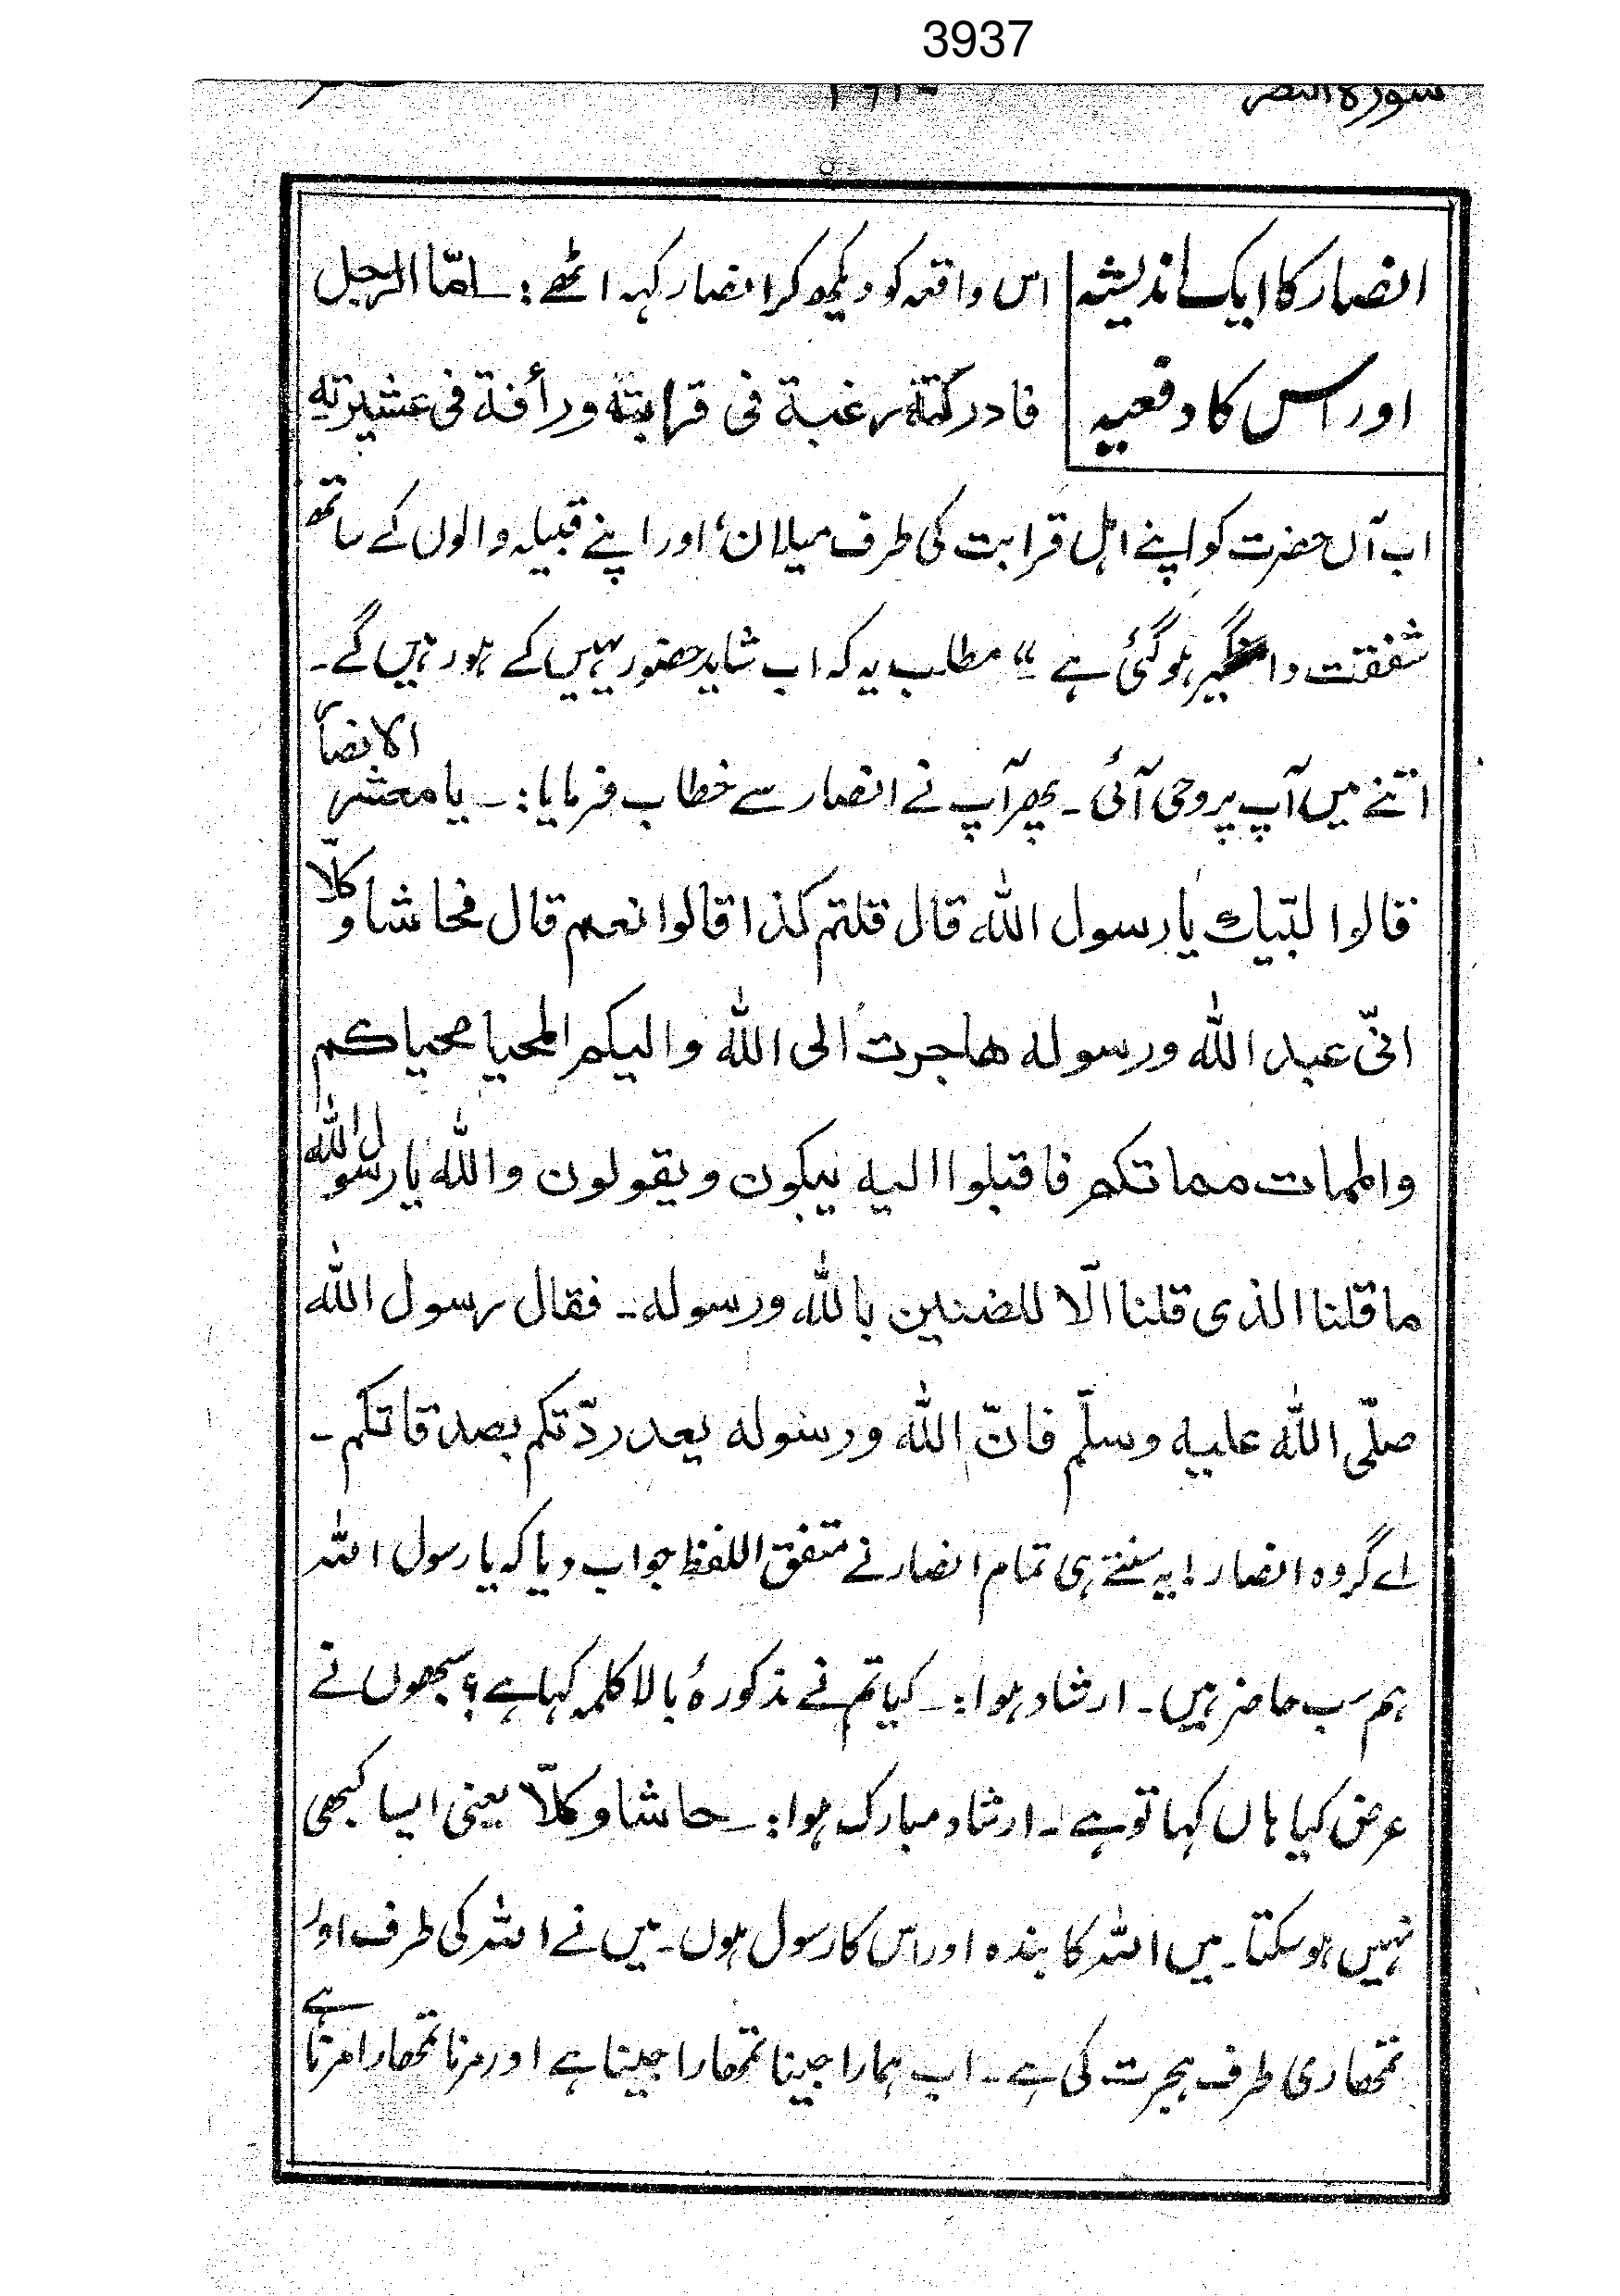 3937
سورة النصر
انصار کا ایک اندیشہ
اور اس کا دفعیہ
اس واقعہ کو دیکھ کر انصار کہہ اٹھے :۔ امّا الرجل
فادرکتۃ رغبۃ فی قرابتہ ورأفۃ فی عشیرتہِ
اب آں حضرت کو اپنے اہل قرابت کی طرف میلان، اور اپنے قبیلہ والوں کے ساتھ
شفقت دامنگیر ہو گئی ہے “ مطلب یہ کہ اب شاید حضور یہیں کے ہو رہیں گے۔
اتنے میں آپ پر وحی آئی۔ پھر آپ نے انصار سے خطاب فرمایا :۔ یا معشر الانصار
قالوا لبّیک یا رسول اللہ قال قلتم کذا قالوا نعم قال فحاشا و کلّا
انّی عبد اللہ ورسولہ ھاجرت الی اللہ والیکم المحیا محیاکم
والممات مماتکم فاقبلوا الیہ یبکون ویقولون واللہ یا رسول اللہ
ما قلنا الذی قلنا الّا للضنین باللہ ورسولہ۔ فقال رسول اللہ
صلّی اللہ علیہ وسلّم فانّ اللہ ورسولہ یعدردّتکم بصدقاتکم۔
اے گروہ انصار! یہ سنتے ہی تمام انصار نے متفق اللفظ جواب دیا کہ یا رسول اللہ
ہم سب حاضر ہیں۔ ارشاد ہوا :۔ کیا تم نے مذکورۂ بالا کلمہ کہا ہے؟ سبھوں نے
عرض کیا ہاں کہا تو ہے۔ ارشاد مبارک ہوا :۔ حاشا و کلّا یعنی ایسا کبھی
نہیں ہو سکتا۔ میں اللہ کا بندہ اور اس کا رسول ہوں۔ میں نے اللہ کی طرف اور
تمھاری طرف ہجرت کی ہے۔ اب ہمارا جینا تمھارا جینا ہے اور مرنا تمھارا مرنا ہے